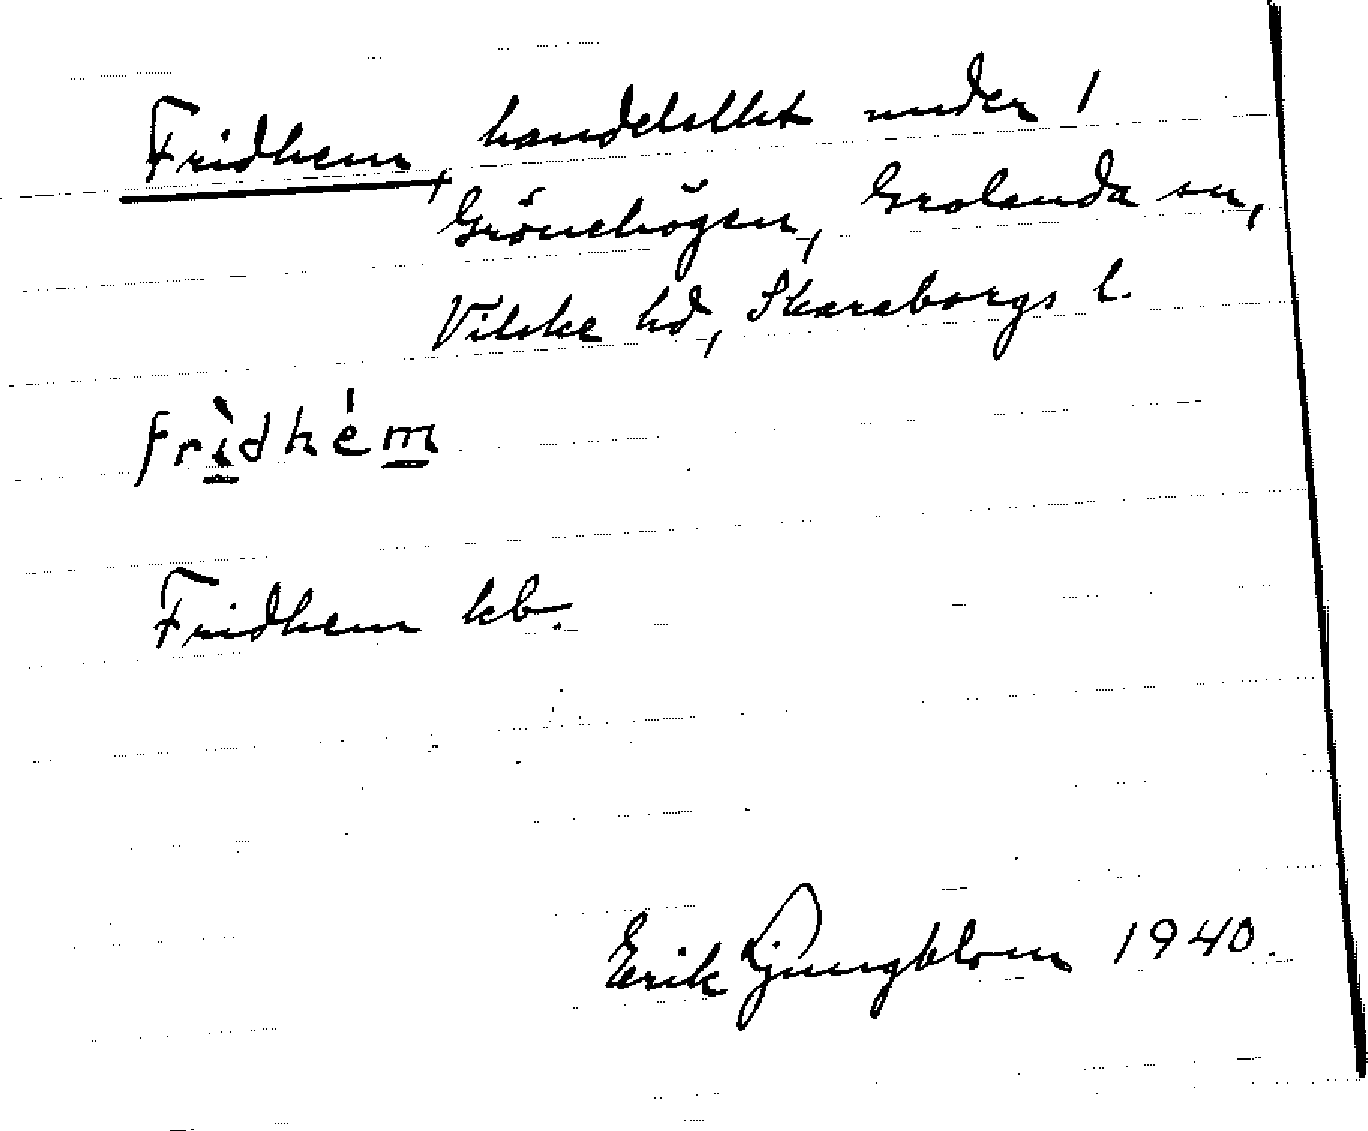 Fridhem, handelsllht under 1
Grönehögen, Grolanda sn,
Vilske hd, Skaraborgs l.
frìdhém
Fridhem kb.
Erik Ljungblom 1940.